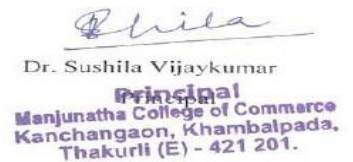 Dr. Sushila Vijaykumar
Principal
Principal
Manjunatha College of Commerce
Kanchangaon, Khambalpada,
Thakurli (E) - 421 201.